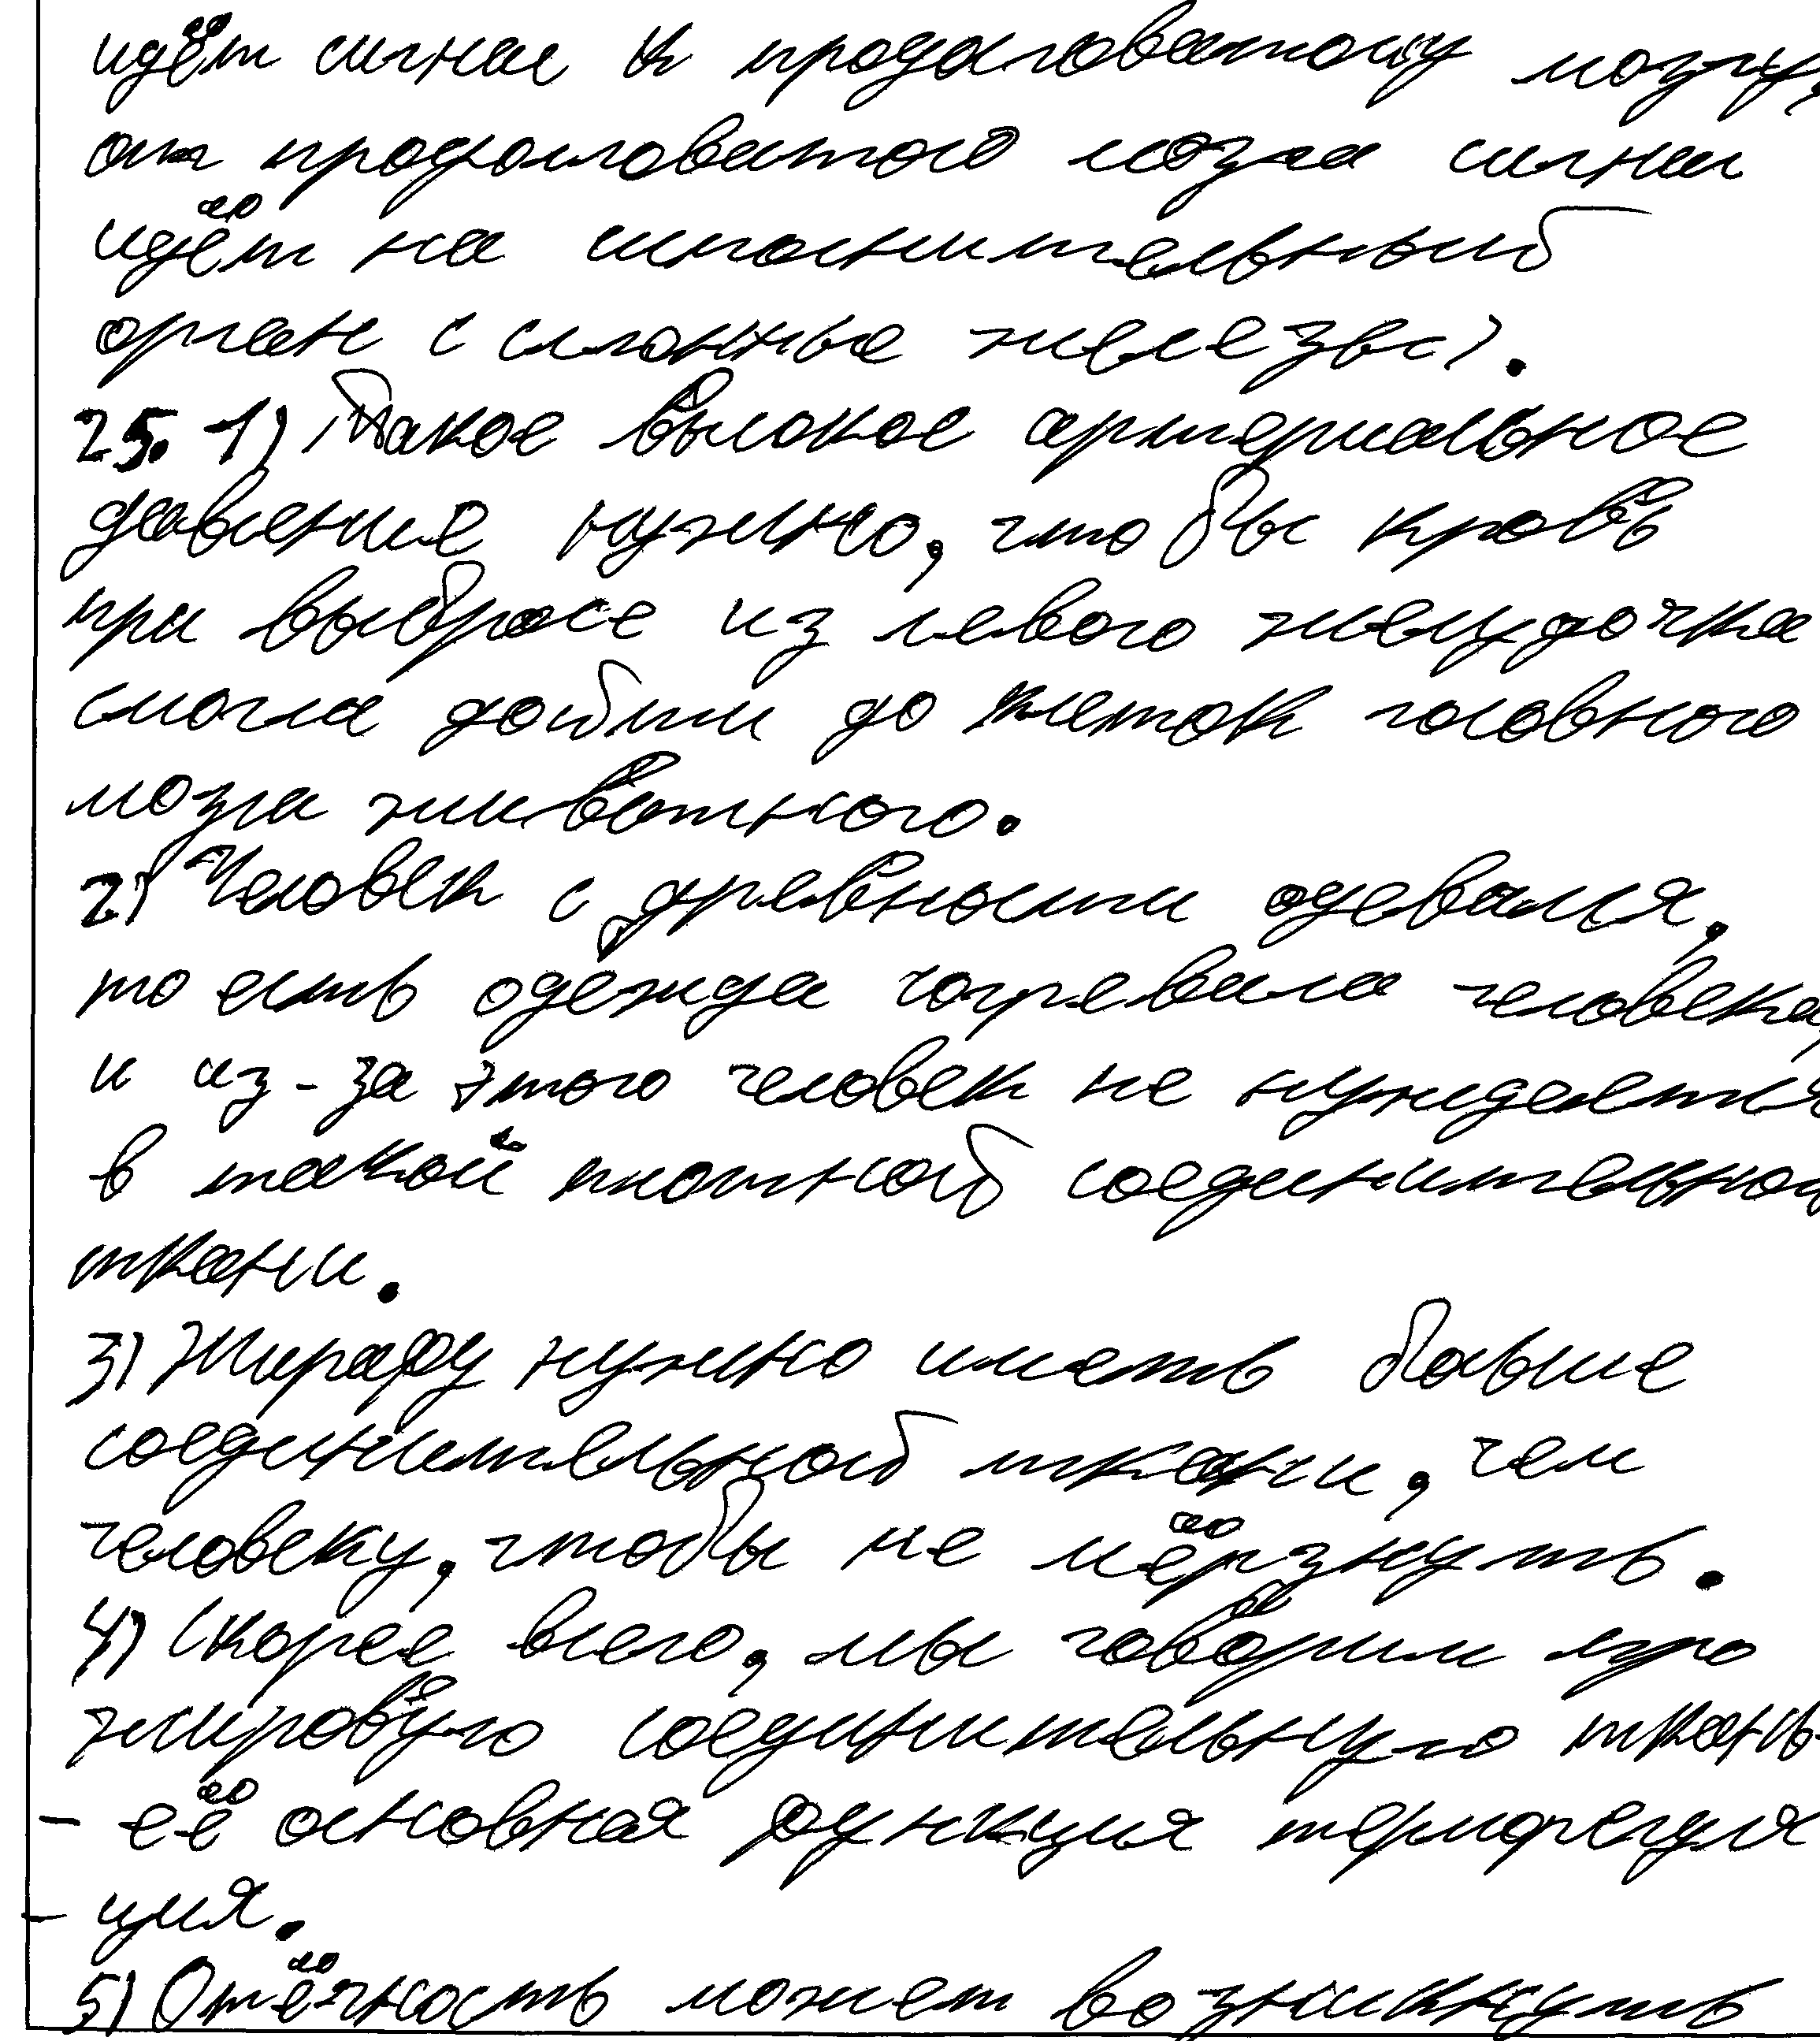 идёт сигнал к продолговатому мозгу,
от продолговатого мозга сигнал
идёт на исполнительный
орган (слюнные железы).
25. 1) Такое высокое артериальное
давление нужно, чтобы кровь
при выбросе из левого желудочка
смогла дойти до клеток головного
мозга животного.
2) Человек с древности одевался,
то есть одежда согревала человека,
и из-за этого человек не нуждается
в такой плотной соединительной
ткани.
3) Жирафу нужно иметь больше
соединительной ткани, чем
человеку, чтобы не мёрзнуть.
4) Скорее всего, мы говорим про
жировую соединительную ткань-
- её основная функция терморегуля
- ция.
5) Отёчность может возникнуть